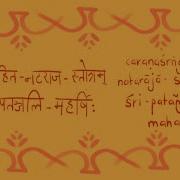 हित - नटराज - स्तोत्रम्
पतञ्जलि - महर्षिः
caraṇaśṛn
naṭarāja - s
śri - patañ
maha